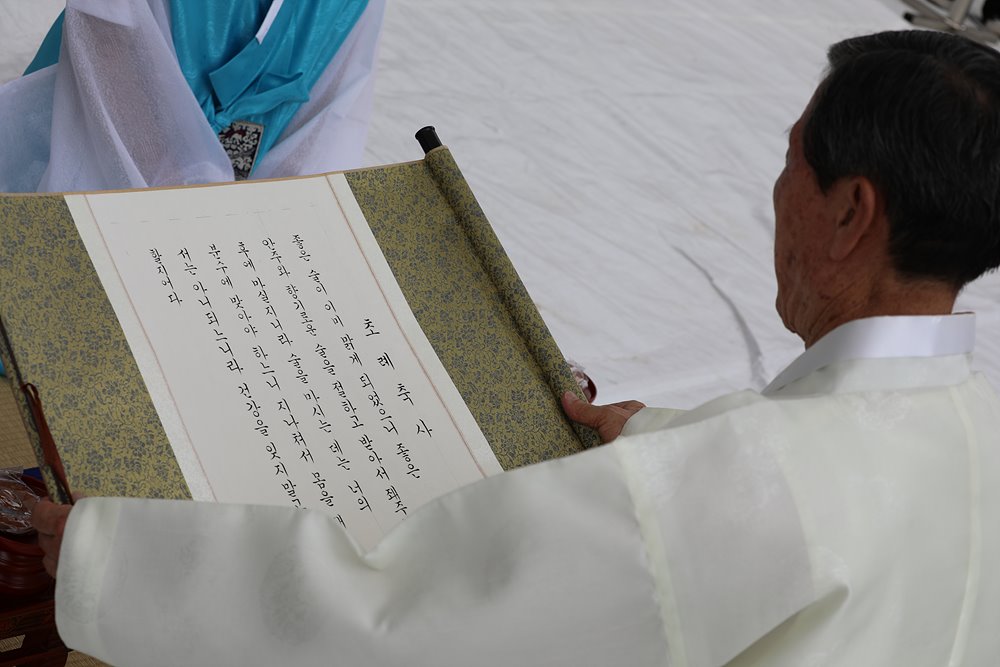 초례축사
좋은 술이 이미 맑게 되었으니 좋은
안주와 향기로운 술을 절하고 받아서 제주
후에 마실지니라. 술을 마시는 데는 너의
분수에 맞아야 하느니 지나쳐서 몸을
서는 아니되느니라. 건강을 잊지 말
할지어다.